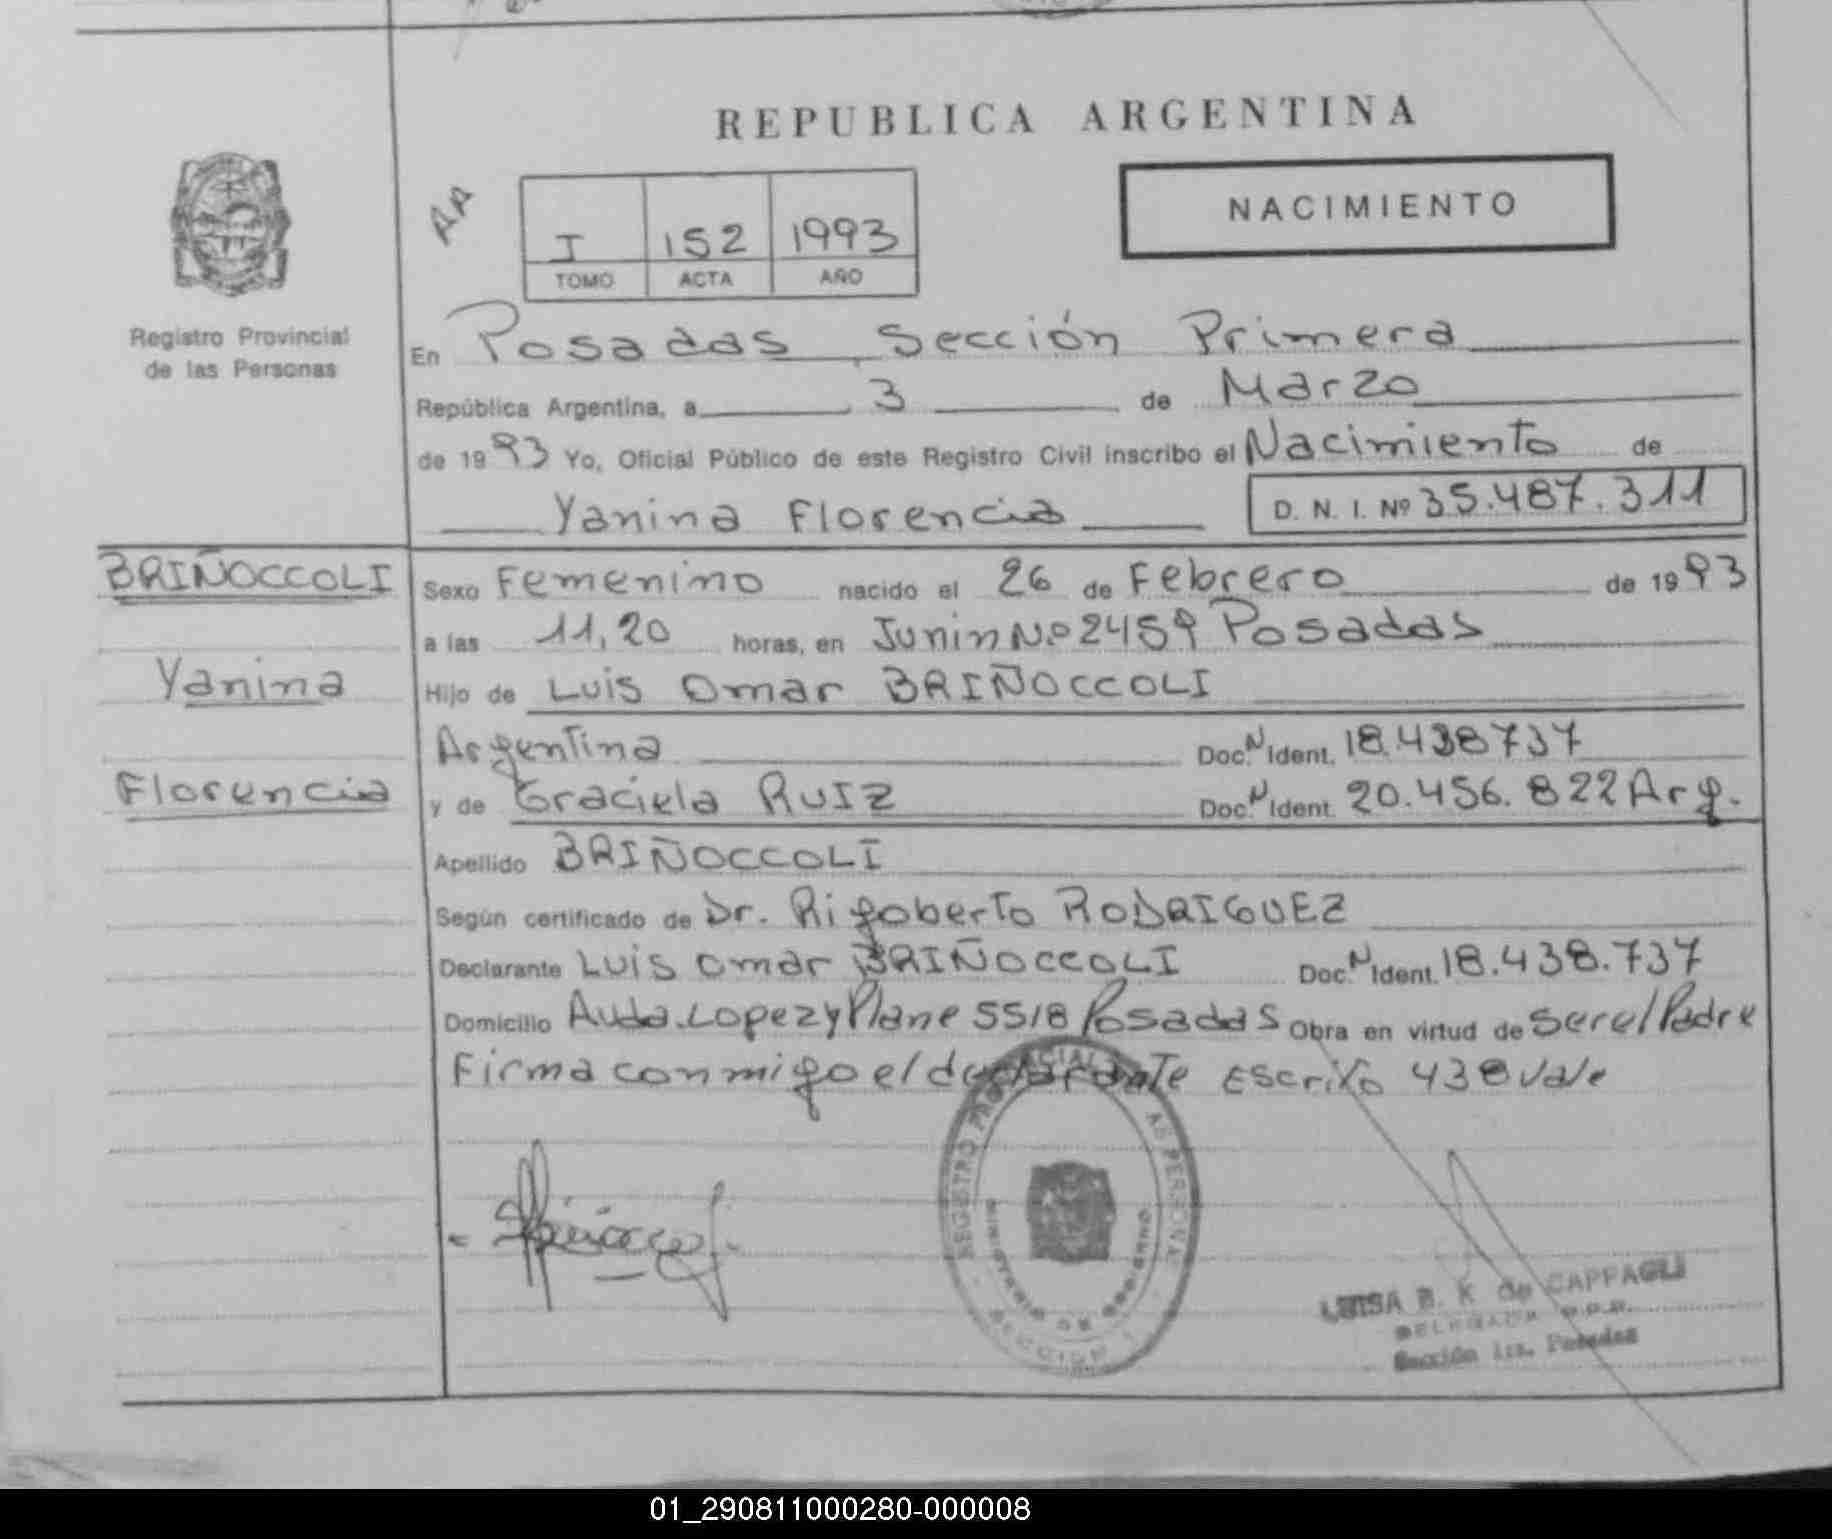 REPUBLICA ARGENTINA
NACIMIENTO
I 152 1993
TOMO ACTA AÑO
Registro Provincial
de las Personas
En Posadas, Sección Primera
República Argentina, a 3 de Marzo
de 1993 Yo, Oficial Público de este Registro Civil inscribo el Nacimiento de
Yanina Florencia D. N. I. Nº 35.487.311
BRIÑOCCOLI
Yanina
Florencia
Sexo Femenino nacido el 26 de Febrero de 1993
a las 11,20 horas, en Junin Nº 2459 Posadas
Hijo de Luis Omar BRIÑOCCOLI
Argentina Doc. N Ident. 18.438737
y de Graciela RUIZ Doc. N Ident. 20.456.822 Arg.
Apellido BRIÑOCCOLI
Según certificado de Dr. Rigoberto RODRIGUEZ
Declarante Luis Omar BRIÑOCCOLI Doc. N Ident. 18.438.737
Domicilio Avda. Lopez y Plane 5518 Posadas Obra en virtud de ser el Padre
Firma conmigo el declarante Escrito 438 vale
MINISTERIO DE GOBIERNO
LUISA B. K de CAPPAGLI
DELEGADA R.P.P.
Sección 1ra. Posadas
01_290811000280-000008